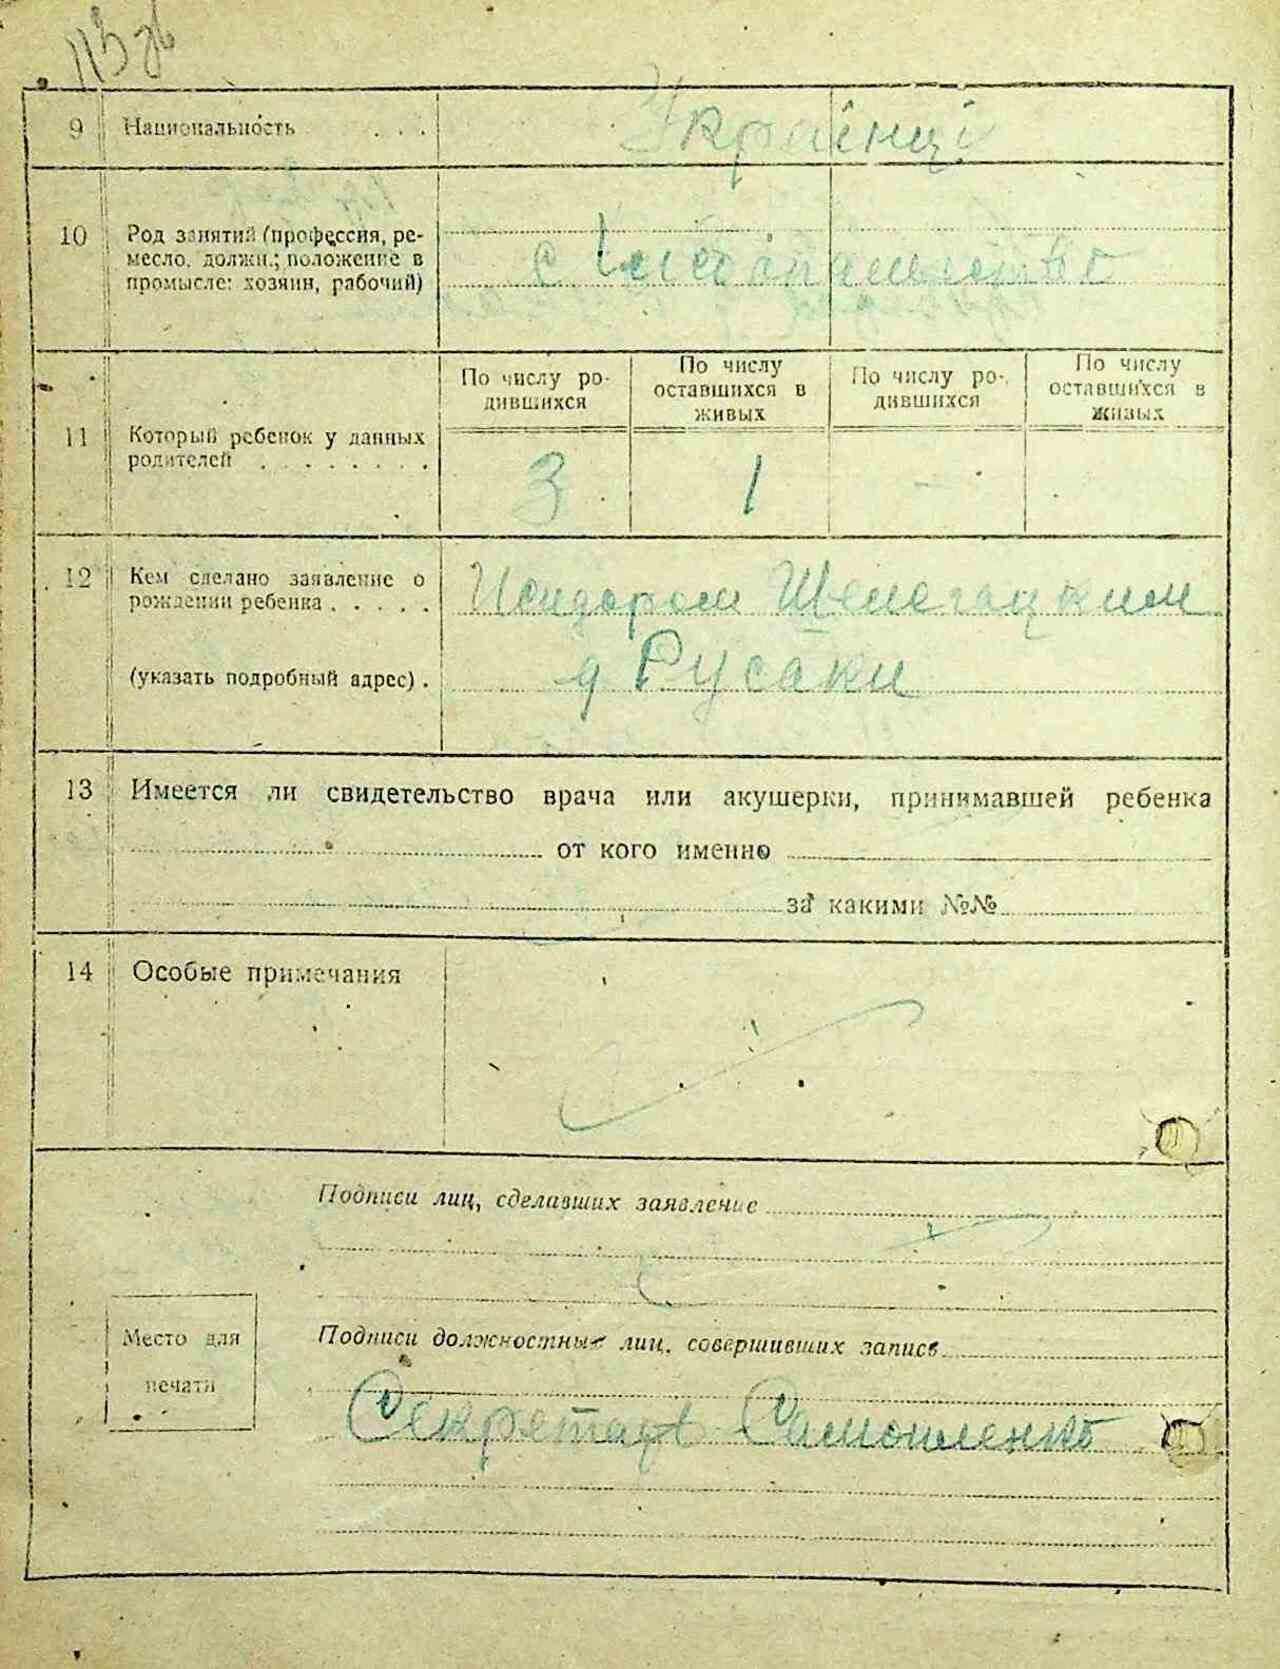 113 зв
9 Национальность . . . Українці
10 Род занятий (профессия, ре-
месло, должн.; положение в
промысле: хозяин, рабочий)
с
11 Который ребенок у данных
родителей . . . . . . . .
По числу ро-
дившихся
По числу
оставшихся в
живых
По числу ро-
дившихся
По числу
оставшихся в
живых
3 1 -
12 Кем сделано заявление о
рождении ребенка . . . . .
(указать подробный адрес) .
Исидором
д Русаки
13 Имеется ли свидетельство врача или акушерки, принимавшей ребенка
от кого именно
за какими №№
14 Особые примечания
Подписи лиц, сделавших заявление
Место для
печати
Подписи должностных лиц, совершивших запись
Секретарь Самойленко